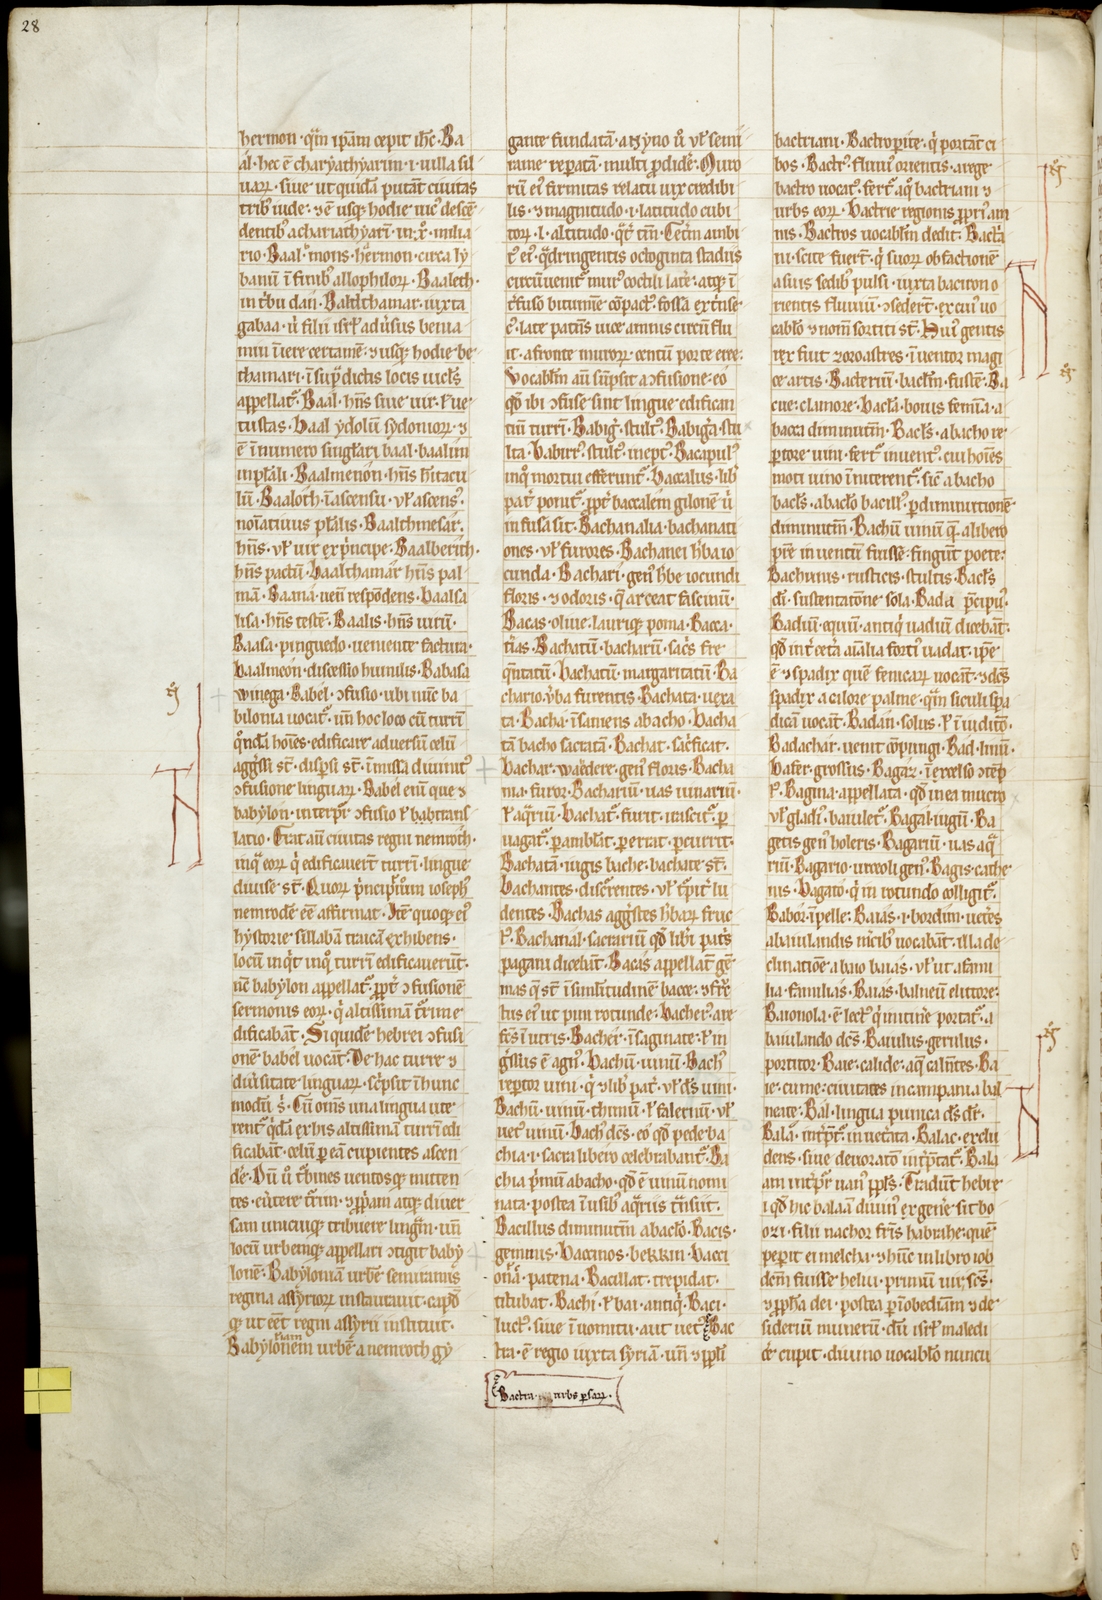 28
hermon · qm̄ ip̄am cepit ih̄c · Ba
al · hec ē charyathyarim · i · uilla sil
uaꝝ · siue ut quidā putāt ciuitas
tribꝰ iude · ⁊ ē usqꝫ hodie uicꝰ descē
dentibꝰ achariathyarī · in · x̊ · milia
rio · Baal mons · hermon · circa ly
banū ī finibꝰ allophiloꝝ · Baaleth ·
in t̄bu dan · Balththamar · iuxta
gabaa · ū filii isrł aduersus benia
min īiere certamē · ⁊ usqꝫ hodie be
thamari · ī sup̄dictis locis uicls̄
appellat᷑ · Baal · hn̄s siue uir · ł ue
tustas · Baal ydolū sydonioꝝ · ⁊
ē ī numero singłari baal · baalim
in plāli · Baalmenon · hn̄s h̄itacu
lū · Baaloth · īascensu · vł ascensꝰ ·
noīatiuus płalis · Baalthmesar ·
hn̄s · vł uir ex p̄ncipe · Baalberith ·
hn̄s pactū · baalthamar hn̄s pal
mā · Baana · ueni respōdens · baalsa
lisa · hn̄s testē · Baalis · hn̄s uirū ·
Baasa · pinguedo · ueniente factura ·
baalmeon · discessio humilis · Babasa
winega · Babel · ↄfusio · ubi nūc ba
bilonia uocat᷑ · un̄ hoc loco cū turrī
qn̄dā hoīes · edificare aduersū celū
aggr̄si st̄ · disp̄si st̄ · īmissa diuinitꝰ
ↄfusione linguaꝝ · Babel enī que ⁊
babylon · interp̄r ↄfusio ł babtrans
latio · Erat aū ciuitas regni nemroth ·
inq̊ eoꝝ q̄ edificauerūt turrī · lingue
diuise st̄ · Quoꝝ p̄ncip̄iū ioseph̄
nemrode eē affirmat · Itē quoqꝫ eiꝰ
hystorie sillabā ciuicā exhibens ·
locū inq̄t inq̊ turrī edificauerūt ·
nc̄ babylon appellat᷑ · ꝓpt̄ ↄfusionē
sermonis eoꝝ · q̄ altissimā t̄rim e
dificabāt · Siquidē hebrei ↄfusi
onē babel uocāt · De hac turre ⁊
diūsitate linguaꝝ · sc̄psit īhunc
modū · s̓ · Cū om̄s una lingua ute
rent᷑ q̄dā ex his altissimā turrī edi
ficabāt · celū ꝑ eā cupientes ascen
de᷑ · Dn̄ ū t̄bines uentosqꝫ mitten
tes · eūtere t̄rim · ⁊ ꝓpām atqꝫ diuer
sam unicuiqꝫ tribuere linguā · un̄
locū urbemqꝫ appellari ↄtigit baby
lonē · Babyloniā urbē semiramis
regina assyrioꝝ instaurauit · capd̄
qꝫ ut eēt regni assyrii instituit ·
Babylonem urbē a nemroth gy
niam
gante fundatā · a nyno ū vł semi
rame repatā · multi ꝓdidē · Quo
rū eiꝰ firmitas relatu uix credibi
lis · ⁊ magnitudo · i · latitudo cubi
toꝝ · l · altitudo · q̄t᷑ tm̄ · Cetīm ambi
tꝰ eiꝰ · q̄dringentis octoginta stadiis
circūuenit᷑ murꝰ coctili latē · atqꝫ ī
t̄fuso bitumīe cōpact᷑ · fossa ext̄nse
cꝰ · late patēs uice amnis circū flu
it · a fronte muroꝝ · centū porte eree ·
Vocablm̄ aū sūpsit a ↄfusione · eo
qd̄ ibi ↄfuse sint lingue edifican
tiū turrī · Babigꝰ · stultꝰ · Babiga · stu
lta · babirrꝰ · stultꝰ · ineptꝰ · Bacapulꝰ
inq̊ mortui efferunt᷑ · baccalus · libꝰ
pat̄ ponit᷑ · ꝓpt̄ baccalem gilonē ū
in fusa sit · Bachanalia · bachanati
ones · vł furores · Bachanei · h̄ba io
cunda · Bachari · genꝰ h̄be iocundi
floris · ⁊ odoris · q̄ arceat fascinū ·
Bacas · oliue · lauriqꝫ poma · Bacca ·
t̄ias · Bachatū · bacharū · sac̄s fre
qn̄tatū · bachatū · margaritatū · Ba
chario · ỳba furentis · Bachata · uexa
ta · Bacha · īsaniens a bacho · bacha
tā bacho sacratā · Bachat · sac̄ficat ·
bachar · waedere · genꝰ floris · Bacha
ma · furor · Bachariū · uas uinariū ·
ł aq̄riū · bachat᷑ · furit · irascit᷑ · ꝑ
uagat᷑ · ꝑamblāt · ꝑerrat · ꝑcurrit ·
Bachatā · iugis bache · bachate · st̄ ·
bachantes · discr̄entes · vł t̄pit̄ lu
dentes · Bachas agg̓stes h̄baꝝ fruc
tꝰ · Bachanal · sacrariū qd̄ libꝰi patꝰs
pagani dicebūt · Bacas appellat̄ gē
mas q̄ st̄ īsimłitudinē bacce · ⁊ frc̄
tus eiꝰ ut pini rotunde · bacherꝰ · arie
tēs īutris · Bacher · īsaginate · ł in
gr̄ssus ē agnꝰ · bachū · uinū · Bachꝰ
reꝑtor uini · q̄ ⁊ libꝰ pat̄ · vł dc̄s uini ·
Bachū · uinū · chinū · ł falernū · vł
uetꝰ uinū · bachꝰ dc̄s · eo qd̄ pede ba
chia · i · sacra libero celebrabant᷑ · Ba
chia p̄mū abacho · qd̄ ē uinū nomi
nata · postea īusibꝰ aq̄riis t̄nsiit ·
Bacillus diminutīm abaclo · Bacis ·
geminis · baccinos · bekkin · bacci
ona · patena · Bacillat · trepidat ·
titubat · Bachi · ł bai · antiq̄ · Baci ·
luctꝰ · siue īuomitu · aut uetꝰ · Bac
tra · ē regio iuxta syriā · un̄ ⁊ ppłi
Bactra · urbs persaꝝ ·
bactriani · Bactroꝑite · q̄ portāt ci
bos · Bactꝰ · fluuiꝰ orientis · a rege
bactro uocat᷑ · fert᷑ aq̊ bactriani ⁊
urbs eoꝝ · bactrie regionis ꝓpriꝰ am
nis · Bactros uocablm̄ dedit · Bacta
ni · scite fuer̄t · q̄ suoꝝ ob factionē
a suis sedibꝰ pulsi · iuxta bactron o
rientis fluuiū · ↄsedert̄ · ex cuiꝰ uo
cablo ⁊ nom̄ sortiti st̄ · Huiꝰ gentis
rex fuit zoroastres · īuentor magi
ce artis · Bacteriū · baclm̄ · fustē · Ba
cue · clamore · bacla · bouis femīa · a
bacca diminutīm · Bacls̄ · abacho re
ꝑtore uini · fert᷑ inuent᷑ · cui hoīes
moti uino īniterent᷑ · sic̄ a bacho
bacls̄ · abaclo bacillꝰ · ꝑ diminutionē
diminutīm · Bachū uinū q̄ · a libero
pr̄e inuentū fuisse · fingūt poete ·
Bachinus · rusticis · stultis · Bacls̄
dꝛ̄ · sustentatōne sola · Bada p̄cipuꝰ ·
Badiū · equū · antiq̄ uadiū dicebāt ·
qd̄ int̄ cet̄a aīalia fortiꝰ uadat · ip̄e
ē ⁊ spadix quē fenicatū uocāt · ⁊ dc̄s
spadix a colore palme · qm̄ siculi spa
dicā uocāt · Badan · solus · ł īiuditō ·
Badachar · uenit cōpungi · Bad · linū ·
bafer · grossus · Bagar · īexcelso ↄtēp
tꝰ · Bagina · appellata · qd̄ in ea mucro
vł gladiꝰ · baiulet᷑ · Bagal · iugū · Ba
getis genꝰ holeris · Bagariū · uas aq̄
riū · Bagario · urceoli genꝰ · Bagis · cathe
nis · bagato · q̄ in rotundo colligit᷑ ·
Babor · īpelle · Baias · i · bordim · uetꝰes
abaiulandis m̄cibꝰ uocabāt · illa de
clinatiōe a baio baias · vł ut a fami
lia · familias · Baias · balneū elittore ·
Baionola · ē lectꝰ q̄ initinē portat᷑ · a
baiulando dc̄s · Baiulus · gerulus ·
portitor · Baie · calide · aq̄ calēntes · Ba
ie · cume · ciuitates in campania bal
neate · Bal · lingua punica dꝰs dꝛ̄ ·
Bala · int̄p̄t᷑ · inuet̄ata · Balac · exclu
dens · siue deuoratō int̄p̄tat᷑ · Bala
am int̄p̄r uanꝰ ppl̄s · Tradūt hebre
i qd̄ hic balaā diuinꝰ ex gen̄e sit bo
ozi · filii nachor fr̄is habrahe · quē
peꝑit ei melcha · ⁊ hūc in libro iob
dem̄ fuisse heliu · primū uir · scs̄ ·
⁊ ꝓph̄a dei · postea ꝑ īobediām ⁊ de
siderium munerū · dū isrł maledi
c̄e cupit · diuino uocablo nuncu